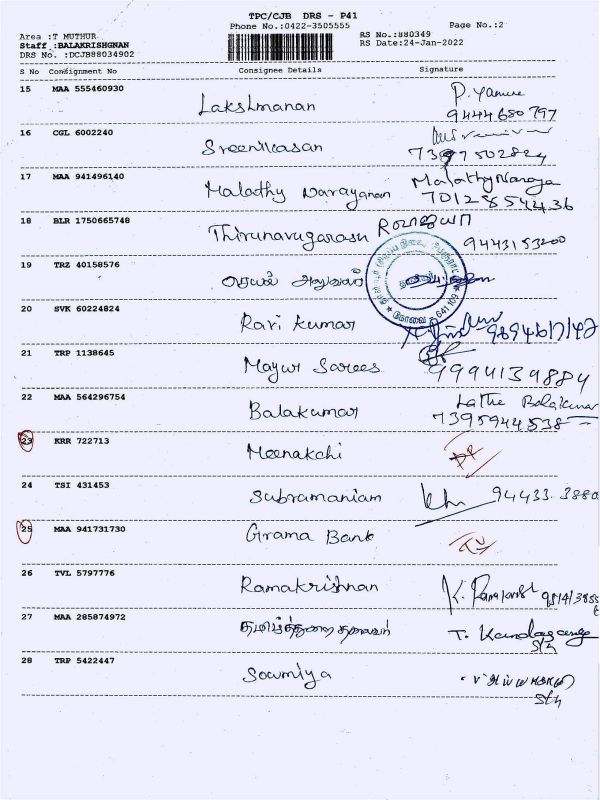 TPC/CJB DRS - P41
Phone No.:0422-3505555 Page No.:2
Area :T MUTHUR RS No.:880349
Staff :BALAKRISHGNAN RS Date:24-Jan-2022
DRS No. :DCJB88034902
S No Consignment No Consignee Details Signature
15 MAA 555460930 Lakshmanan P. Yamne
9444680797
16 CGL 6002240 Sreenivasan
7397502824
17 MAA 941496140 Malathy Narayanan Malathy Naraya
7012854236
18 BLR 1750665748 Thirunavugarasu
9443153200
19 TRZ 40158576
20 SVK 60224824 Ravi Kumar
21 TRP 1138645 Mayur Sarees
9994139884
22 MAA 564296754 Balakumar Latha Balakumar
7395944538
23 KRR 722713 Meenakchi
24 TSI 431453 Subramaniam 94433.3880
25 MAA 941731730 Grama Bank
26 TVL 5797776 Ramakrishnan
27 MAA 285874972 T. Kandasamy
28 TRP 5422447 Sowmiya
கோவை 641 109